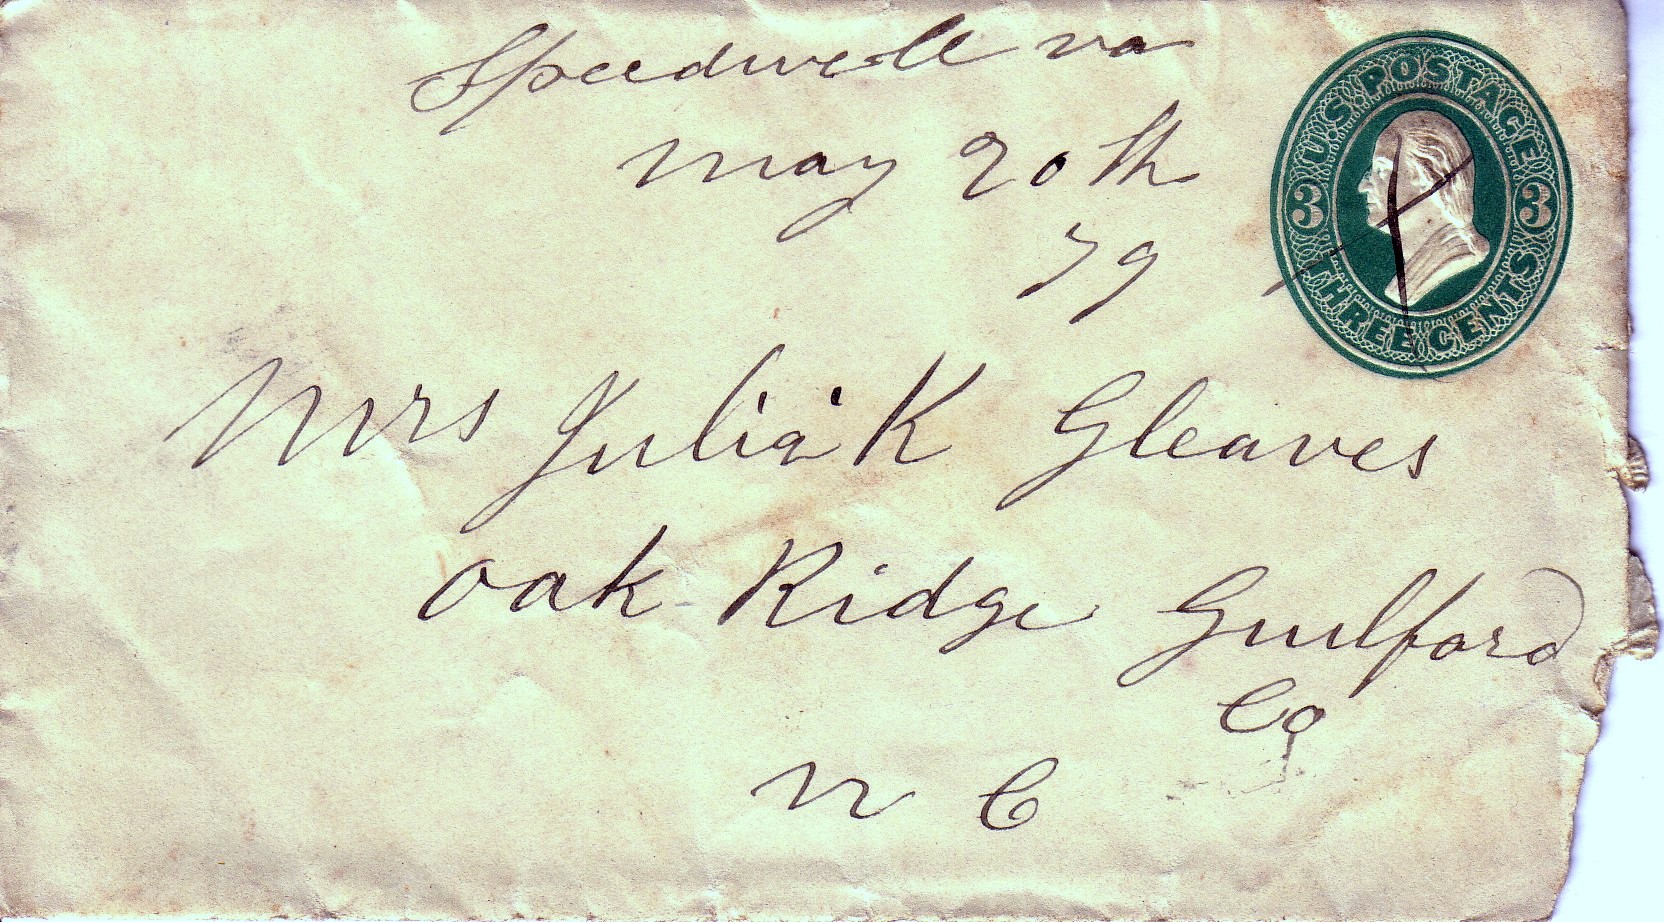 Speedwell va
may 20th
79
U.S. POSTAGE
3 3
THREE CENTS
Mrs Julia K Gleaves
Oak Ridge Guilford
Co
N C